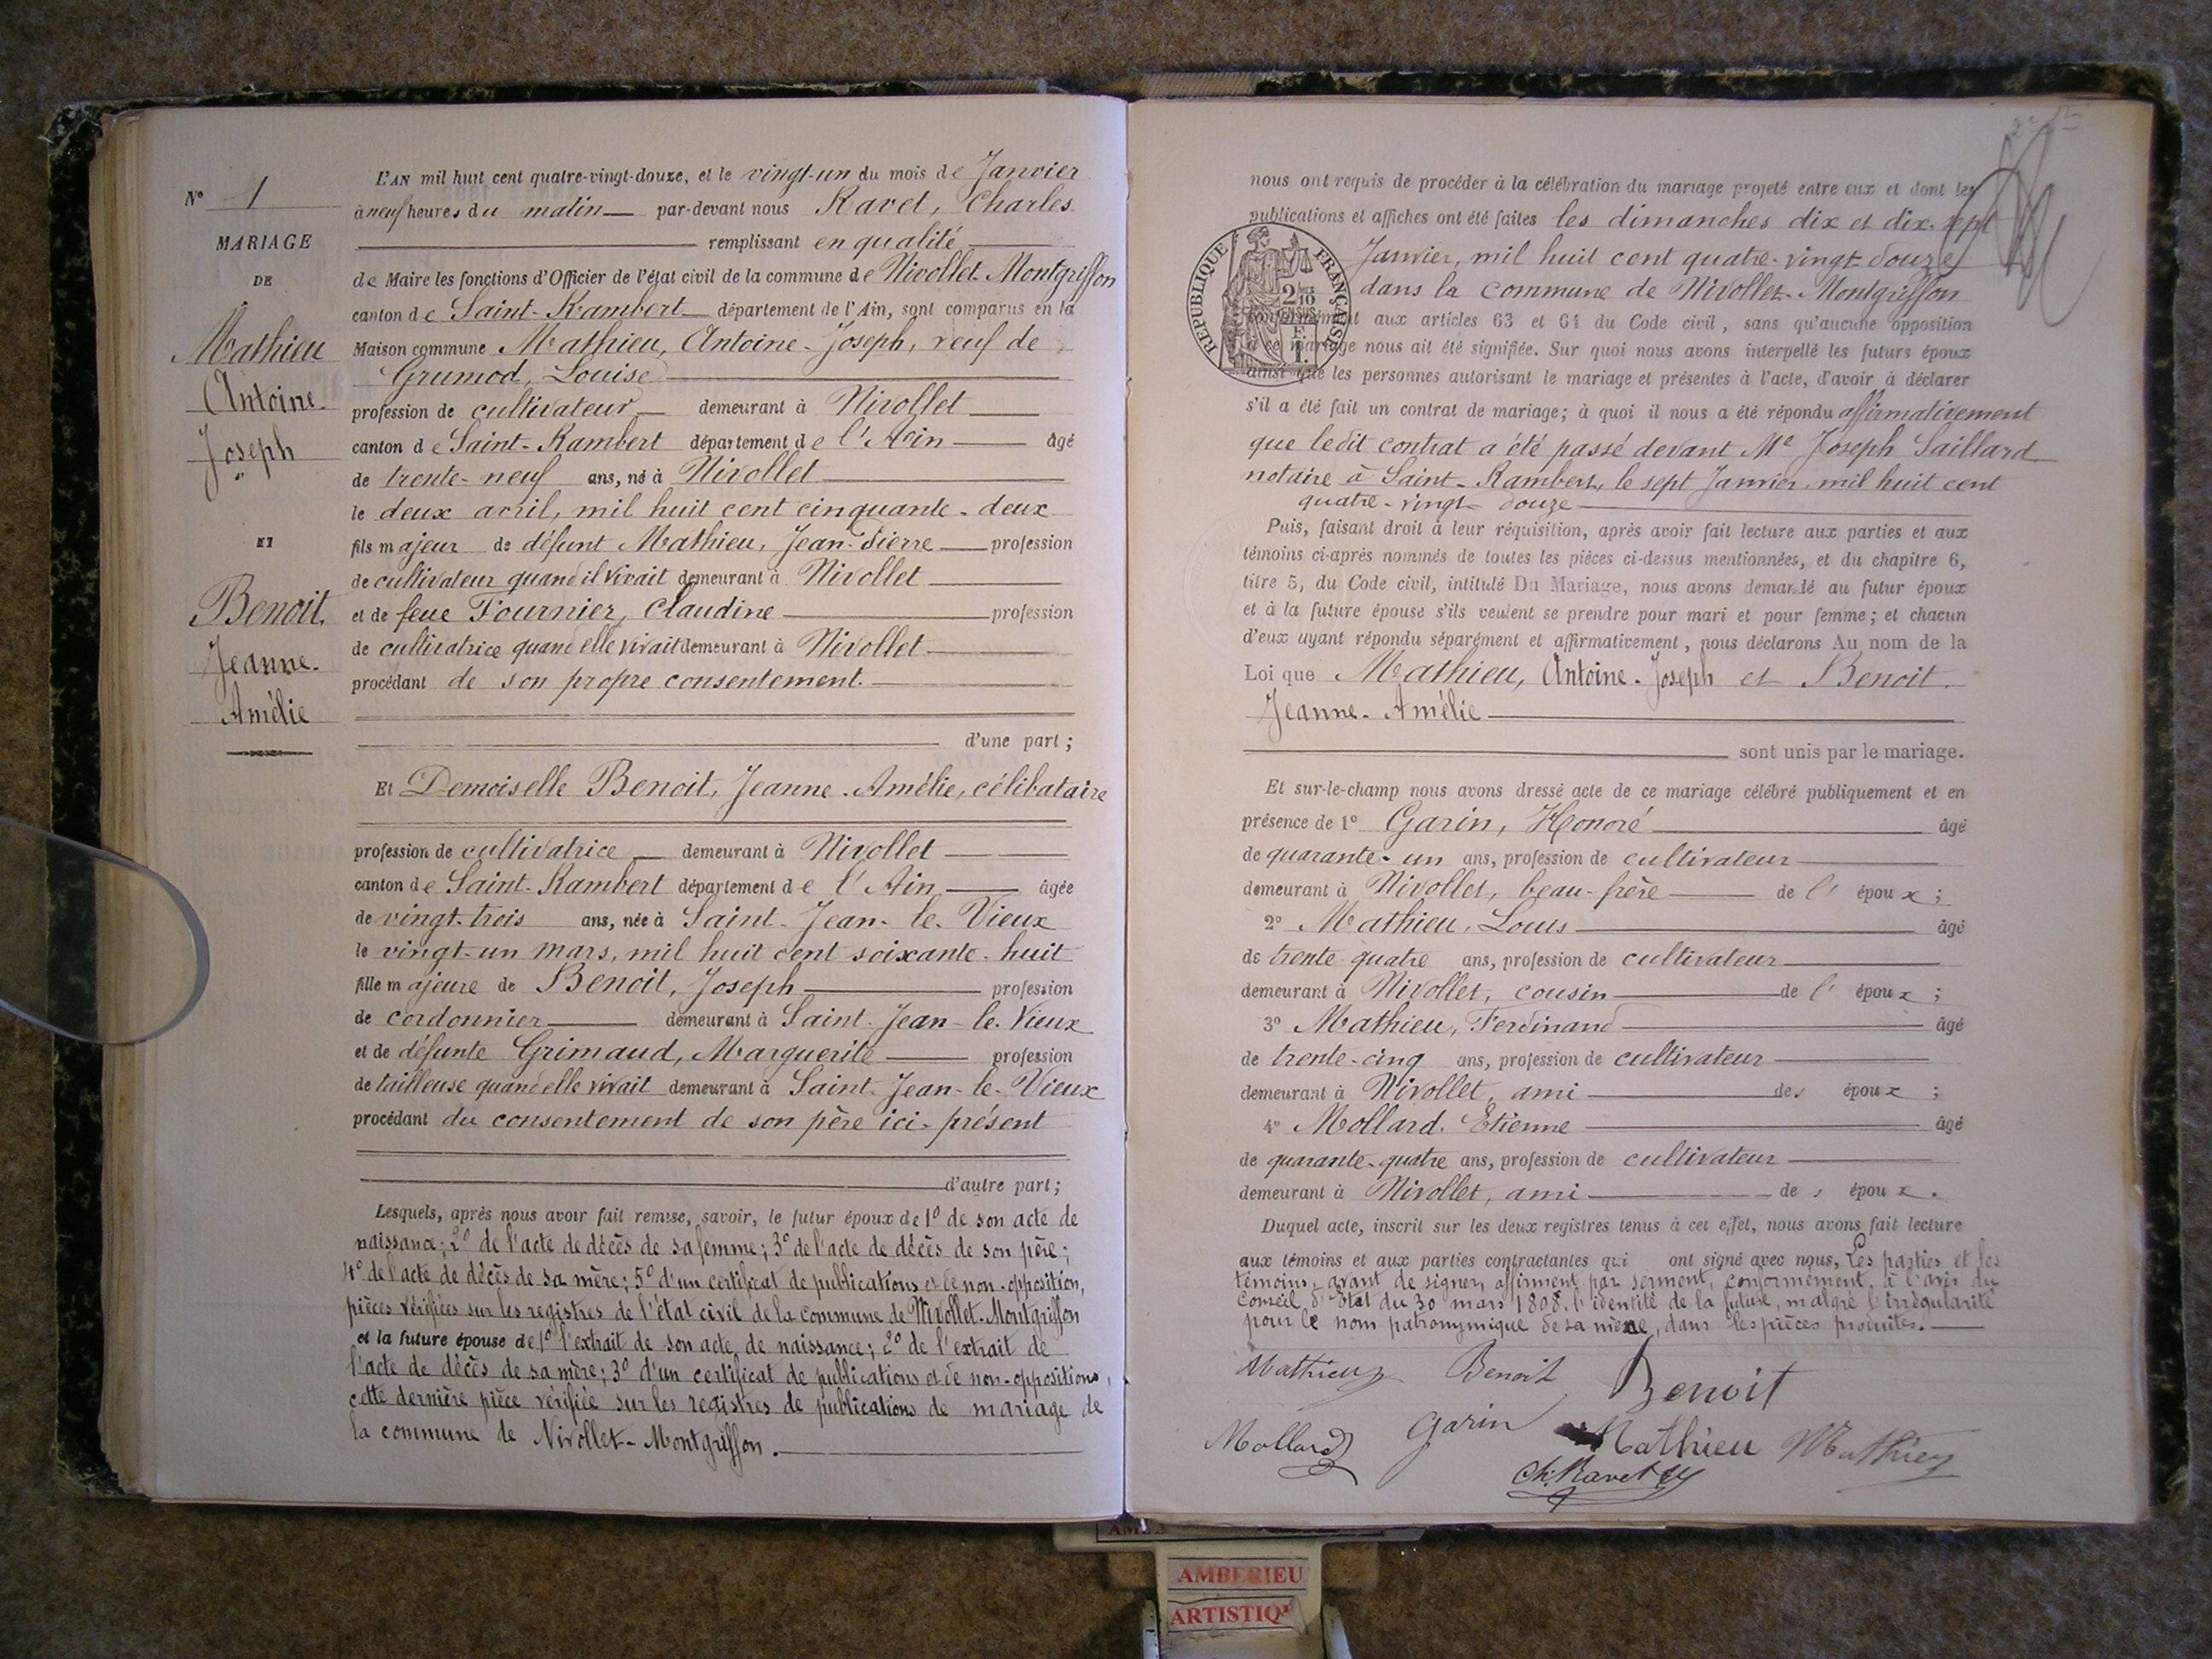 N° 1
MARIAGE
DE
Mathieu
Antoine-
Joseph
ET
Benoit,
Jeanne-
Amélie
L'AN mil huit cent quatre-vingt-douze, et le vingt-un du mois de Janvier
à neuf heures du matin par-devant nous Ravet, Charles
remplissant en qualité
de Maire les fonctions d'Officier de l'état civil de la commune de Nivollet-Montgriffon
canton de Saint-Rambert département de l'Ain, sont comparus en la
Maison commune Mathieu, Antoine-Joseph, veuf de
Grumod, Louise
profession de cultivateur demeurant à Nivollet
canton de Saint-Rambert département de l'Ain âgé
de trente-neuf ans, né à Nivollet
le deux avril, mil huit cent cinquante-deux
fils majeur de défunt Mathieu, Jean-Pierre profession
de cultivateur quand il vivait demeurant à Nivollet
et de feue Fournier, Claudine profession
de cultivatrice quand elle vivait demeurant à Nivollet
procédant de son propre consentement.
d'une part;
Et Demoiselle Benoit, Jeanne-Amélie, célibataire
profession de cultivatrice demeurant à Nivollet
canton de Saint-Rambert département de l'Ain âgée
de vingt-trois ans, née à Saint-Jean-le-Vieux
le vingt-un mars, mil huit cent soixante-huit
fille majeure de Benoit, Joseph profession
de cordonnier demeurant à Saint-Jean-le-Vieux
et de défunte Grimaud, Marguerite profession
de tailleuse quand elle vivait demeurant à Saint-Jean-le-Vieux
procédant du consentement de son père ici-présent
d'autre part;
Lesquels, après nous avoir fait remise, savoir, le futur époux de 1° de son acte de
naissance; 2° de l'acte de décès de sa femme; 3° de l'acte de décès de son père;
4° de l'acte de décès de sa mère; 5° d'un certificat de publications et de non-opposition,
pièces vérifiées sur les registres de l'état civil de la commune de Nivollet-Montgriffon
et la future épouse de 1° l'extrait de son acte de naissance; 2° de l'extrait de
l'acte de décès de sa mère; 3° d'un certificat de publications et de non-oppositions,
cette dernière pièce vérifiée sur les registres de publications de mariage de
la commune de Nivollet-Montgriffon.
nous ont requis de procéder à la célébration du mariage projeté entre eux et dont les
publications et affiches ont été faites les dimanches dix et dix-sept
Janvier, mil huit cent quatre-vingt-douze
dans la commune de Nivollet-Montgriffon
RÉPUBLIQUE FRANÇAISE
2 10
EN SUS
F.
1.
conformément aux articles 63 et 64 du Code civil, sans qu'aucune opposition
à ce mariage nous ait été signifiée. Sur quoi nous avons interpellé les futurs époux
ainsi que les personnes autorisant le mariage et présentes à l'acte, d'avoir à déclarer
s'il a été fait un contrat de mariage; à quoi il nous a été répondu affirmativement
que ledit contrat a été passé devant Me Joseph Saillard
notaire à Saint-Rambert, le sept Janvier, mil huit cent
quatre-vingt-douze
Puis, faisant droit à leur réquisition, après avoir fait lecture aux parties et aux
témoins ci-après nommés de toutes les pièces ci-dessus mentionnées, et du chapitre 6,
titre 5, du Code civil, intitulé Du Mariage, nous avons demandé au futur époux
et à la future épouse s'ils veulent se prendre pour mari et pour femme; et chacun
d'eux ayant répondu séparément et affirmativement, nous déclarons Au nom de la
Loi que Mathieu, Antoine-Joseph et Benoit,
Jeanne-Amélie
sont unis par le mariage.
Et sur-le-champ nous avons dressé acte de ce mariage célébré publiquement et en
présence de 1° Garin, Honoré âgé
de quarante-un ans, profession de cultivateur
demeurant à Nivollet, beau-frère de l'époux;
2° Mathieu, Louis âgé
de trente-quatre ans, profession de cultivateur
demeurant à Nivollet, cousin de l'époux;
3° Mathieu, Ferdinand âgé
de trente-cinq ans, profession de cultivateur
demeurant à Nivollet, ami des époux;
4° Mollard, Etienne âgé
de quarante-quatre ans, profession de cultivateur
demeurant à Nivollet, ami des époux.
Duquel acte, inscrit sur les deux registres tenus à cet effet, nous avons fait lecture
aux témoins et aux parties contractantes qui ont signé avec nous, Les parties et les
témoins, avant de signer, affirment par serment, conformément à l'avis du
Conseil d'Etat du 30 mars 1808, l'identité de la future, malgré l'irrégularité
pour le nom patronymique de sa mère, dans les pièces produites.
Mathieu Benoit Benoit
Mollard Garin Mathieu Mathieu
Ch. Ravet
AMBERIEU
ARTISTIQU